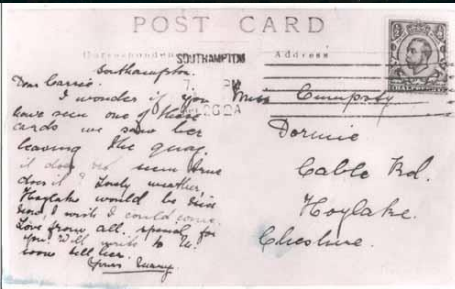 POST CARD
Correspondence
Address
SOUTHAMPTON
7. PM
12A
Southampton.
Dear Carrie.
I wonder if you
have seen one of these
cards we saw her
leaving the quay.
it does not seem true
does it" Lovely weather,
Hoylake would be nice
now I wish I could come.
Love from all. special for
you. Will write to
soon tell her.
Yours
Miss
Dormie
Cable Rd.
Hoylake.
Cheshire.